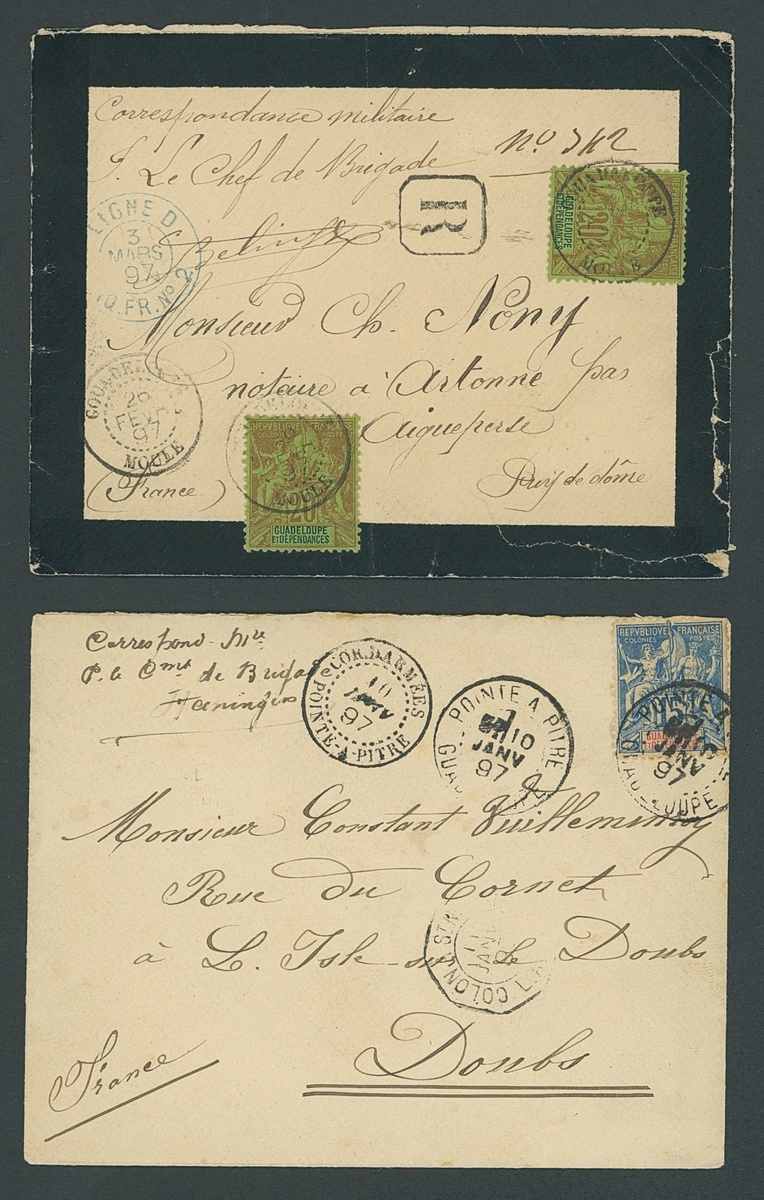 Correspondance militaire
Le Chef de Brigade
No 342
R
LIGNE D
3
MARS
97
PAQ. FR. No 2
REPUBLIQUE FRANCAISE
COLONIES POSTES
20
GUADELOUPE
ET DEPENDANCES
GUADELOUPE
MOULE
Monsieur Ch. Nony
notaire à Artonne par
Aigueperse
Puy de dôme
(France)
GUADELOUPE
FEVR
97
MOULE
MOULE
REPUBLIQUE FRANÇAISE
COLONIES POSTES
20
GUADELOUPE
ET DÉPENDANCES
Correspond. Mre
P. le Cmt de Brigade
COR. D. ARMÉES
10
JANV
97
POINTE-A-PITRE
POINTE A PITRE
10
JANV
97
GUADELOUPE
REPUBLIQUE FRANÇAISE
COLONIES POSTES
POINTE A
JANV
97
GUADELOUPE
Monsieur Constant
Rue du Cornet
à L. Isle sur le Doubs
COLON
JANV
Doubs
France